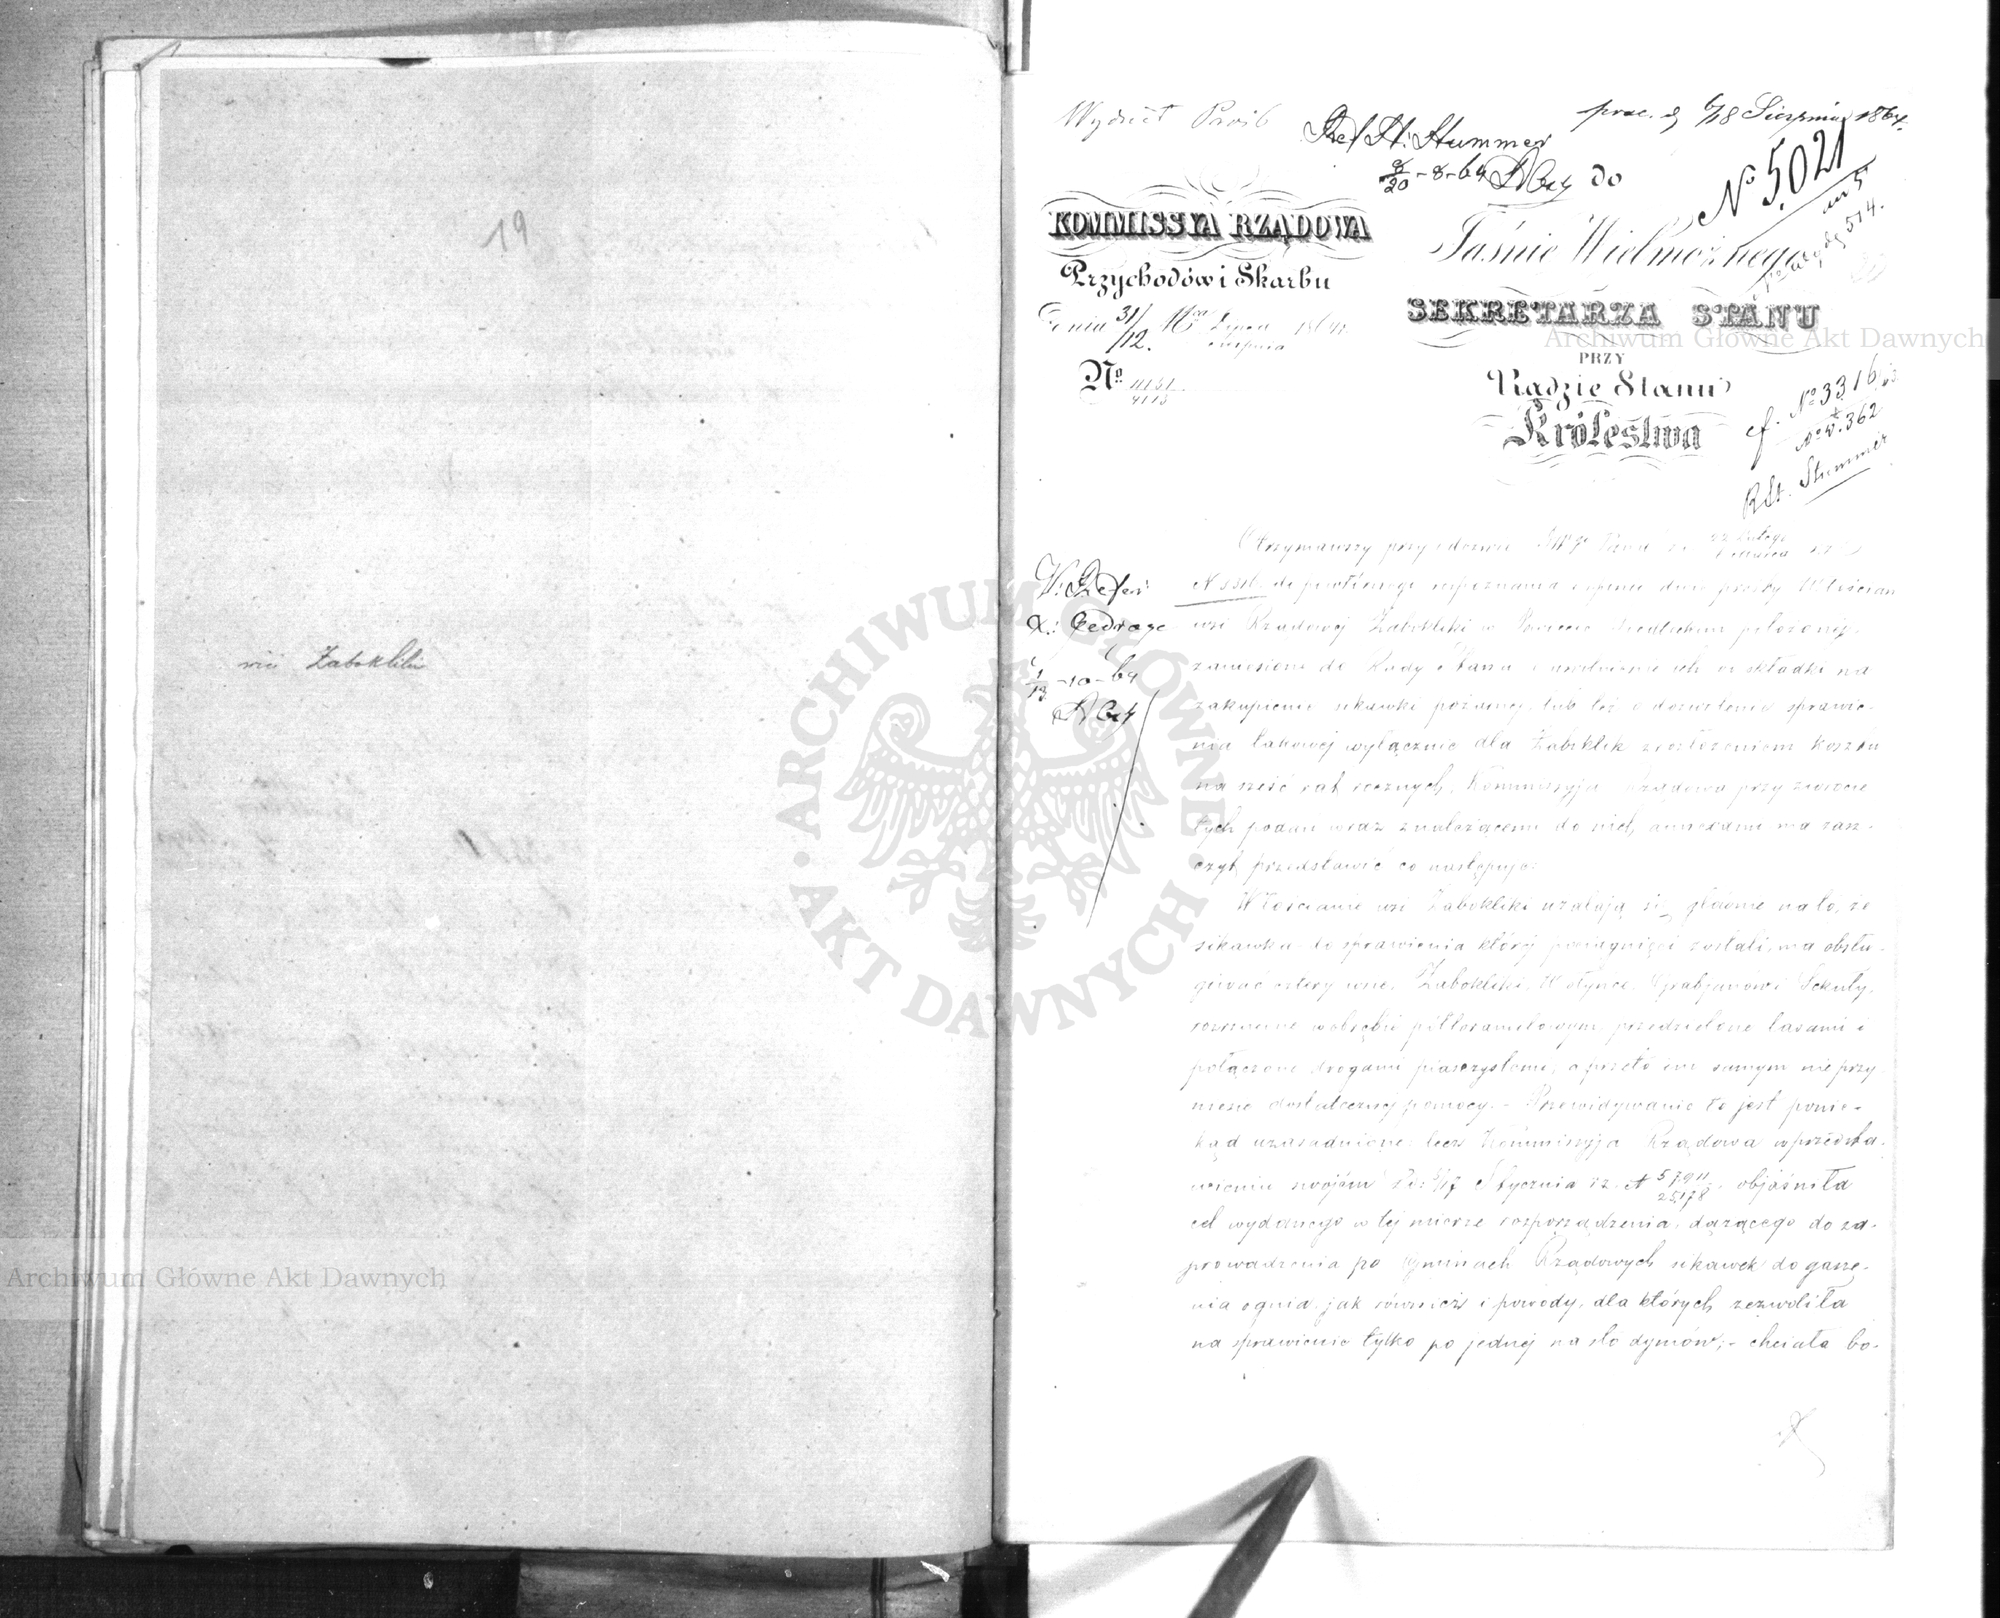 19
wsi Żabokliki
Wydział Próśb
prze. d. 6/18 Sierpnia 1864.
Ref. St: Stummer
8/20 - 8 - 64
do
No 5021
KOMMISSYA RZĄDOWA
Przychodów i Skarbu
Dnia 31/12. Lipca Sierpnia 1864
No 11151
Jaśnie Wielmożnego
SEKRETARZA STANU
PRZY
Radzie Stanu
Królestwa
cf. No 3316
No 362
R. St. Stummer
V: Referi
1/13 - 10 - 64
Otrzymawszy przy odezwie JW Pana z d. 22 Lutego 5 Marca r.
N 3316 do powtórnego rozpoznania i opinii dwie prośby Włościan
wsi Rządowej Żabokliki w Powiecie Siedleckim położonej,
zaniesione do Rady Stanu o uwolnienie ich od składki na
zakupienie sikawki pożarnej, lub też o dozwolenie sprawie-
nia takowej wyłącznie dla Żaboklik z rozłożeniem kosztu
na sześć rat rocznych, Kommissyja Rządowa przy zwrocie
tych podań wraz z należącemi do nich annexami ma zasz-
czyt przedstawić co następuje:
Włościanie wsi Żabokliki użalają się głównie na to, że
sikawka do sprawienia której pociągnięci zostali, ma obsłu-
giwać cztery wsie, Żabokliki, Wołyńce, Grabjanów i Sekuły,
rozrzucone w obrębie półtoramilowym, przedzielone lasami i
połączone drogami piasczystemi, a przeto im samym nie przy-
niesie dostatecznej pomocy. - Przewidywanie to jest ponie-
kąd uzasadnione, lecz Kommissyja Rządowa w przedsta-
wieniu swojém z d: 5/17 Stycznia r.z. N 57911/25178, objaśniła
cel wydanego w tej mierze rozporządzenia, dążącego do za-
prowadzenia po Gminach Rządowych sikawek do gasze-
nia ognia, jak również i powody, dla których zezwoliła
na sprawienie tylko po jednej na sto dymów; - chciała bo-
Archiwum Główne Akt Dawnych
Archiwum Główne Akt Dawnych
ARCHIWUM GŁÓWNE · AKT DAWNYCH ·